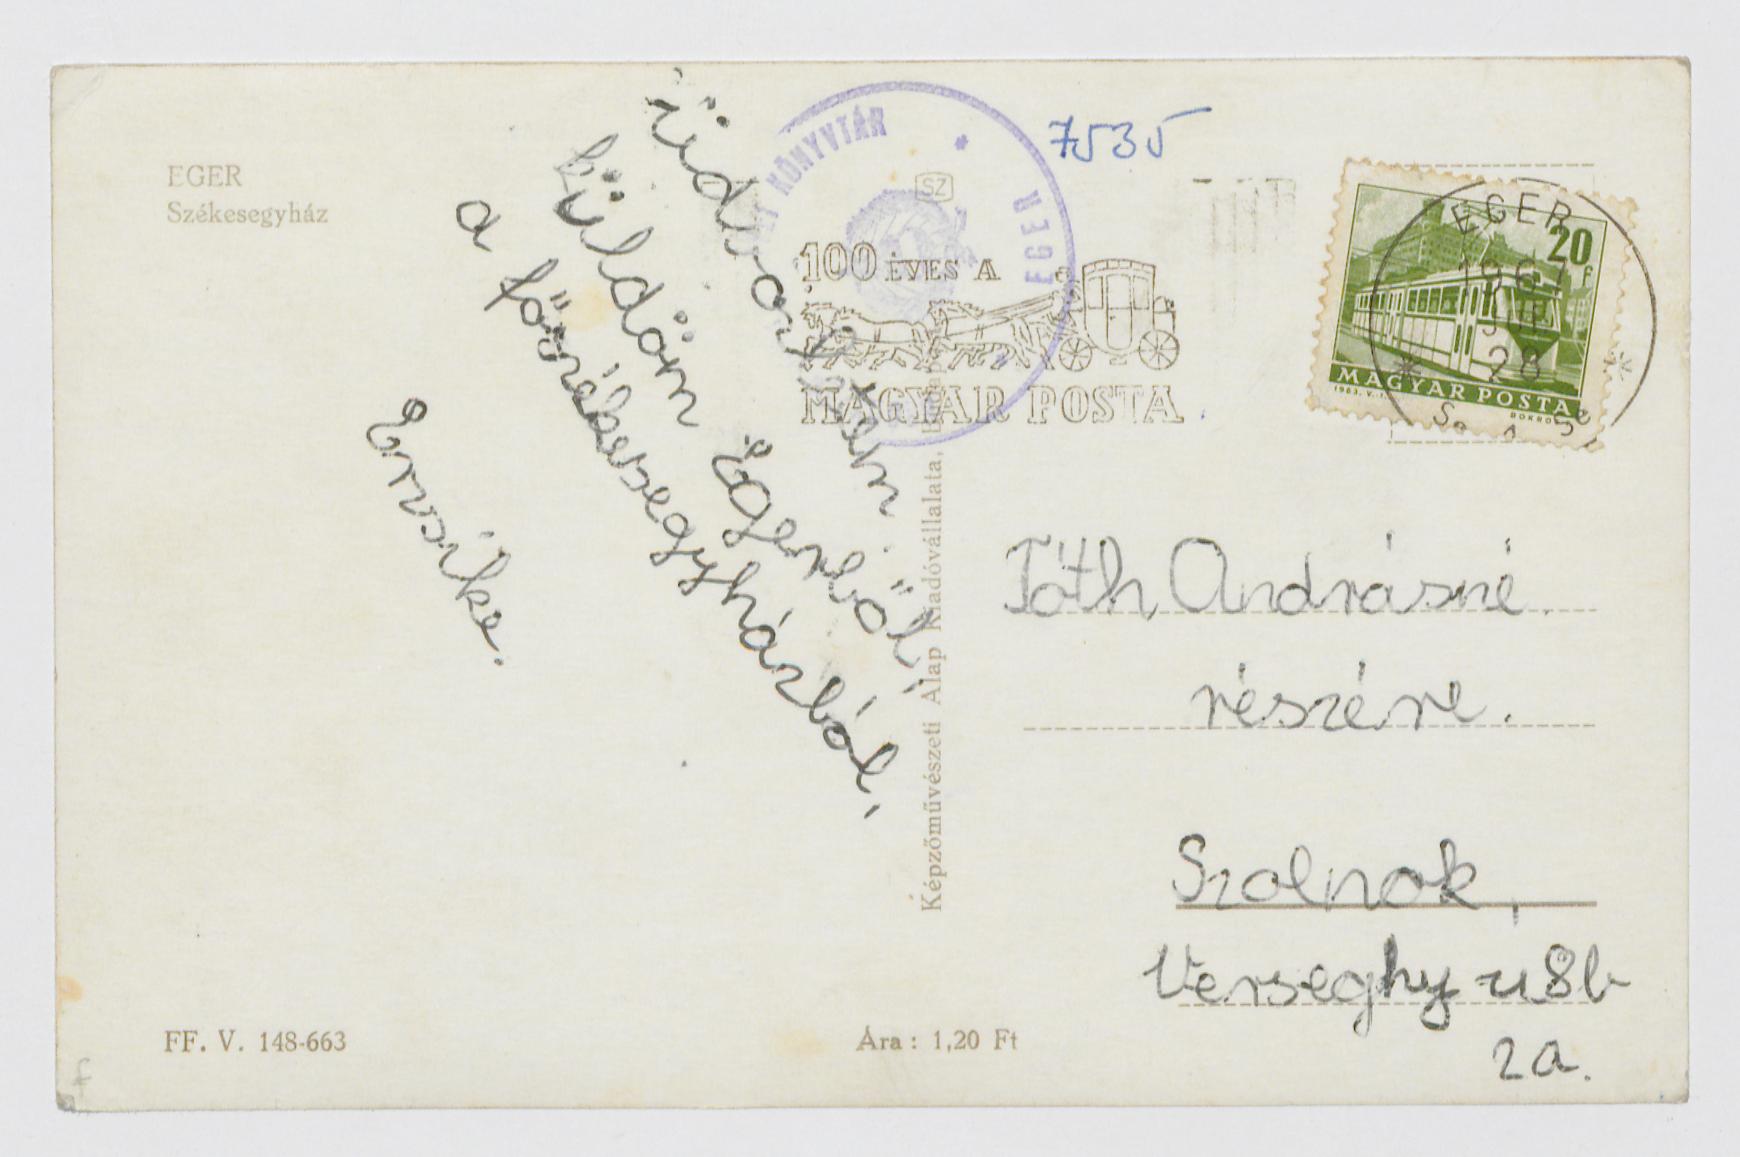 EGER
Székesegyház
üdvözletem
küldöm Egerből,
a főszékesegyházból,
Erzsike.
KÖNYVTÁR * EGER
7535
SZ
100 ÉVES A
MAGYAR POSTA
EGER
1967
28
20f
MAGYAR POSTA
1963. V.
BOKROS
Képzőművészeti Alap Kiadóvállalata,
Tóth Andrásné.
részére.
Szolnok,
Verseghy u 8b
2a.
FF. V. 148-663
Ára: 1,20 Ft